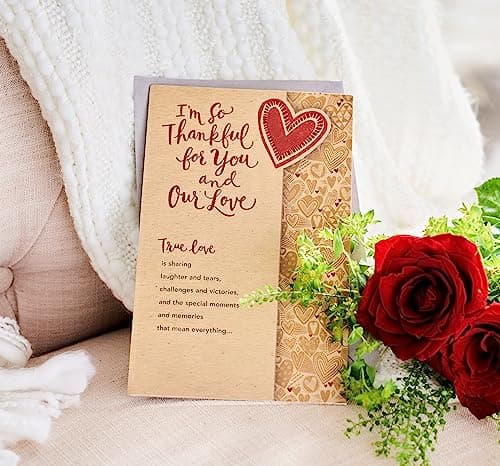 I'm So
Thankful
for You
and
Our Love
True love
is sharing
laughter and tears,
challenges and victories,
and the special moments
and memories
that mean everything...